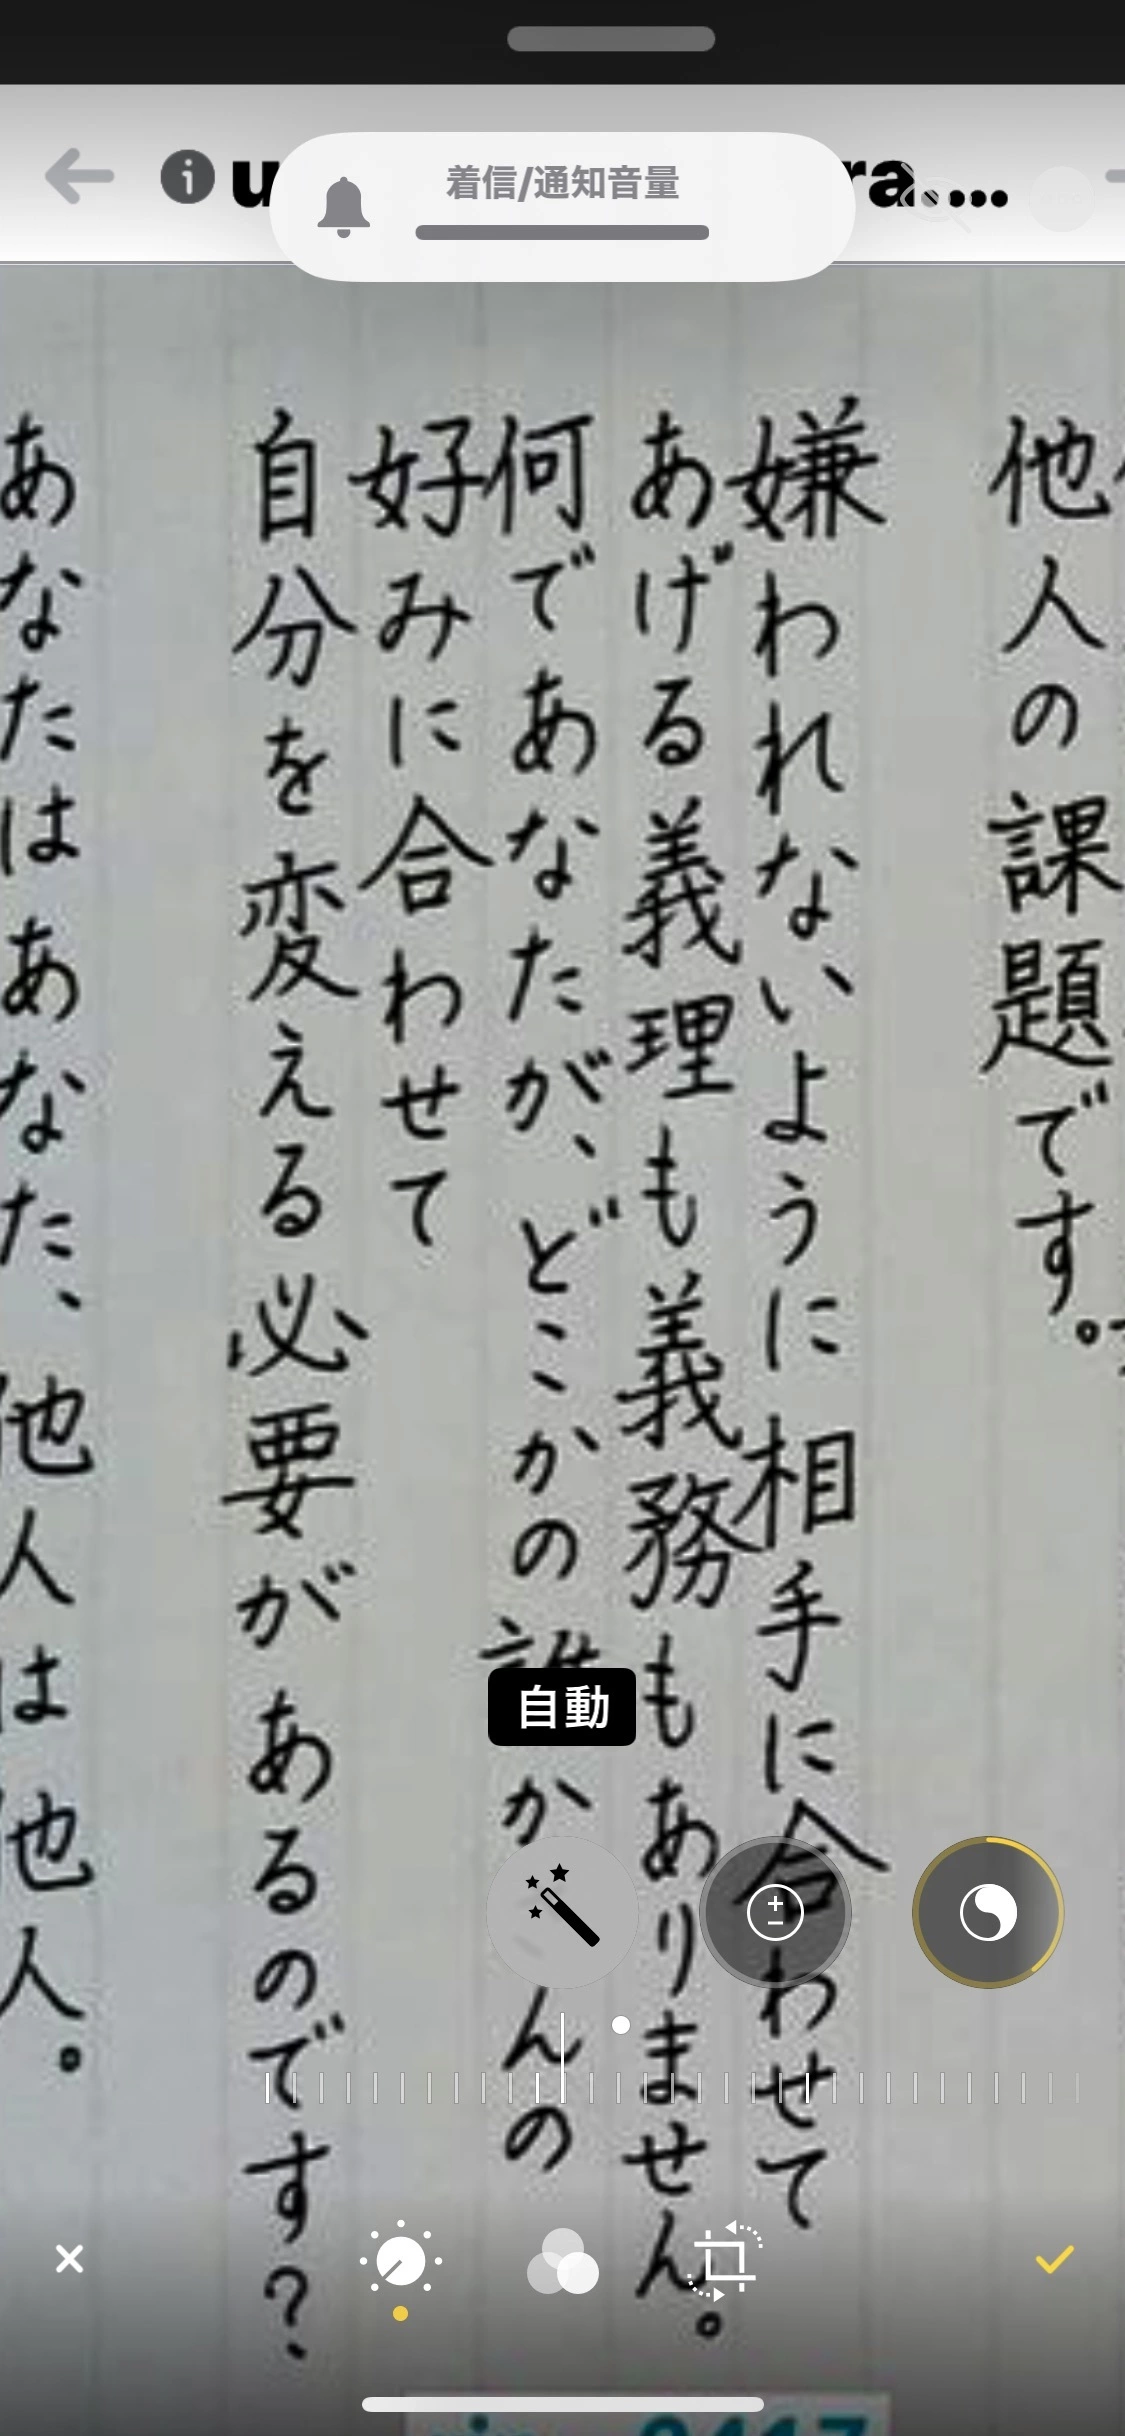 着信/通知音量
他人の課題です。
嫌われないように相手に合わせて
あげる義理も義務もありません。
何であなたが、どこかの誰かんの
好みに合わせて
自分を変える必要があるのです?
あなたはあなた、他人は他人。
自動